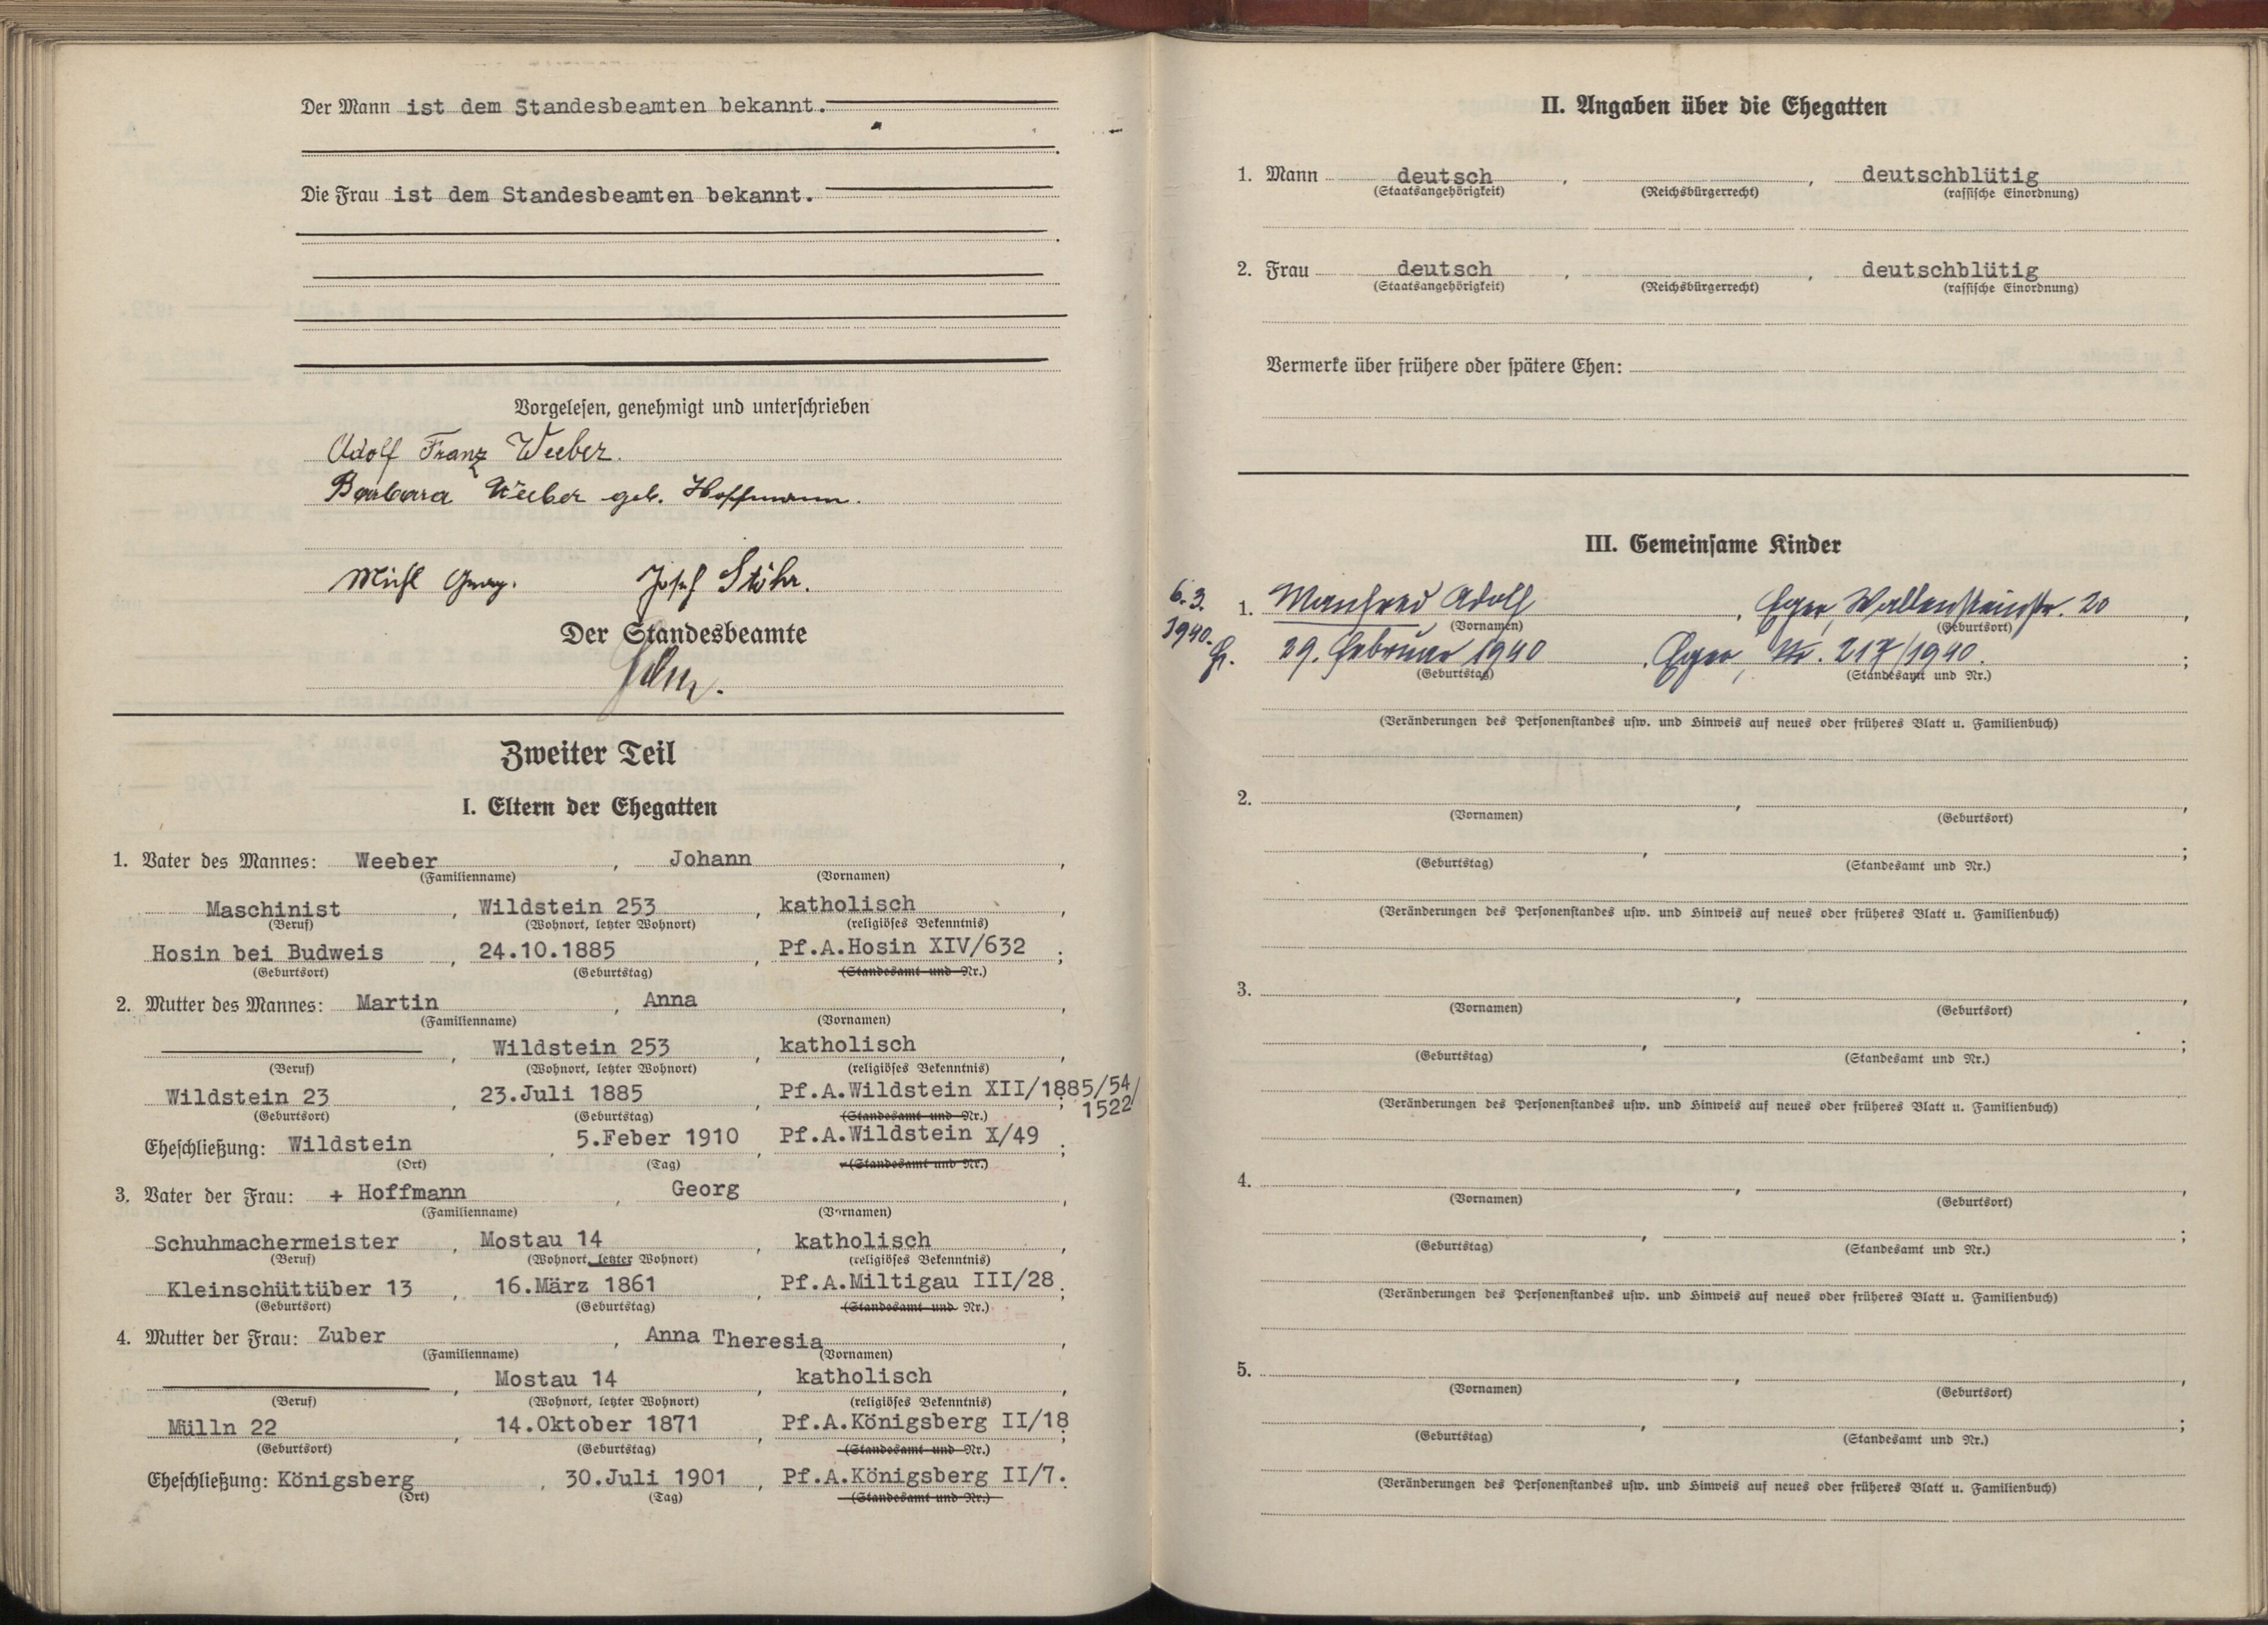 Der Mann ist dem Standesbeamten bekannt.
Die Frau ist dem Standesbeamten bekannt.
Vorgelesen, genehmigt und unterschrieben
Adolf Franz Weeber.
Barbara Weeber geb. Hoffmann.
Michl Georg. Josef Stöhr.
Der Standesbeamte
Zweiter Teil
I. Eltern der Ehegatten
1. Vater des Mannes: Weeber , Johann ,
(Familienname) (Vornamen)
Maschinist , Wildstein 253 , katholisch ,
(Beruf) (Wohnort, letzter Wohnort) (religiöses Bekenntnis)
Hosin bei Budweis , 24.10.1885 , Pf.A.Hosin XIV/632 ;
(Geburtsort) (Geburtstag) (Standesamt und Nr.)
2. Mutter des Mannes: Martin , Anna ,
(Familienname) (Vornamen)
, Wildstein 253 , katholisch ,
(Beruf) (Wohnort, letzter Wohnort) (religiöses Bekenntnis)
Wildstein 23 , 23.Juli 1885 , Pf.A.Wildstein XII/1885/54/
(Geburtsort) (Geburtstag) (Standesamt und Nr.) ; 1522
Eheschließung: Wildstein , 5.Feber 1910 , Pf.A.Wildstein X/49 ;
(Ort) (Tag) (Standesamt und Nr.)
3. Vater der Frau: + Hoffmann , Georg ,
(Familienname) (Vornamen)
Schuhmachermeister , Mostau 14 , katholisch ,
(Beruf) (Wohnort, letzter Wohnort) (religiöses Bekenntnis)
Kleinschüttüber 13 , 16.März 1861 , Pf.A.Miltigau III/28 ;
(Geburtsort) (Geburtstag) (Standesamt und Nr.)
4. Mutter der Frau: Zuber , Anna Theresia ,
(Familienname) (Vornamen)
, Mostau 14 , katholisch ,
(Beruf) (Wohnort, letzter Wohnort) (religiöses Bekenntnis)
Mülln 22 , 14.Oktober 1871 , Pf.A.Königsberg II/18 ;
(Geburtsort) (Geburtstag) (Standesamt und Nr.)
Eheschließung: Königsberg , 30.Juli 1901 , Pf.A.Königsberg II/7.
(Ort) (Tag) (Standesamt und Nr.)
II. Angaben über die Ehegatten
1. Mann deutsch , , deutschblütig
(Staatsangehörigkeit) (Reichsbürgerrecht) (rassische Einordnung)
2. Frau deutsch , , deutschblütig
(Staatsangehörigkeit) (Reichsbürgerrecht) (rassische Einordnung)
Vermerke über frühere oder spätere Ehen:
III. Gemeinsame Kinder
6.3. 1. Manfred Adolf , Eger, Wallensteinstr. 20 ,
(Vornamen) (Geburtsort)
1940. 29. Februar 1940 , Eger, Nr. 217/1940. ;
(Geburtstag) (Standesamt und Nr.)
(Veränderungen des Personenstandes usw. und Hinweis auf neues oder früheres Blatt u. Familienbuch)
2. , ,
(Vornamen) (Geburtsort)
, ;
(Geburtstag) (Standesamt und Nr.)
(Veränderungen des Personenstandes usw. und Hinweis auf neues oder früheres Blatt u. Familienbuch)
3. , ,
(Vornamen) (Geburtsort)
, ;
(Geburtstag) (Standesamt und Nr.)
(Veränderungen des Personenstandes usw. und Hinweis auf neues oder früheres Blatt u. Familienbuch)
4. , ,
(Vornamen) (Geburtsort)
, ;
(Geburtstag) (Standesamt und Nr.)
(Veränderungen des Personenstandes usw. und Hinweis auf neues oder früheres Blatt u. Familienbuch)
5. , ,
(Vornamen) (Geburtsort)
, ;
(Geburtstag) (Standesamt und Nr.)
(Veränderungen des Personenstandes usw. und Hinweis auf neues oder früheres Blatt u. Familienbuch)